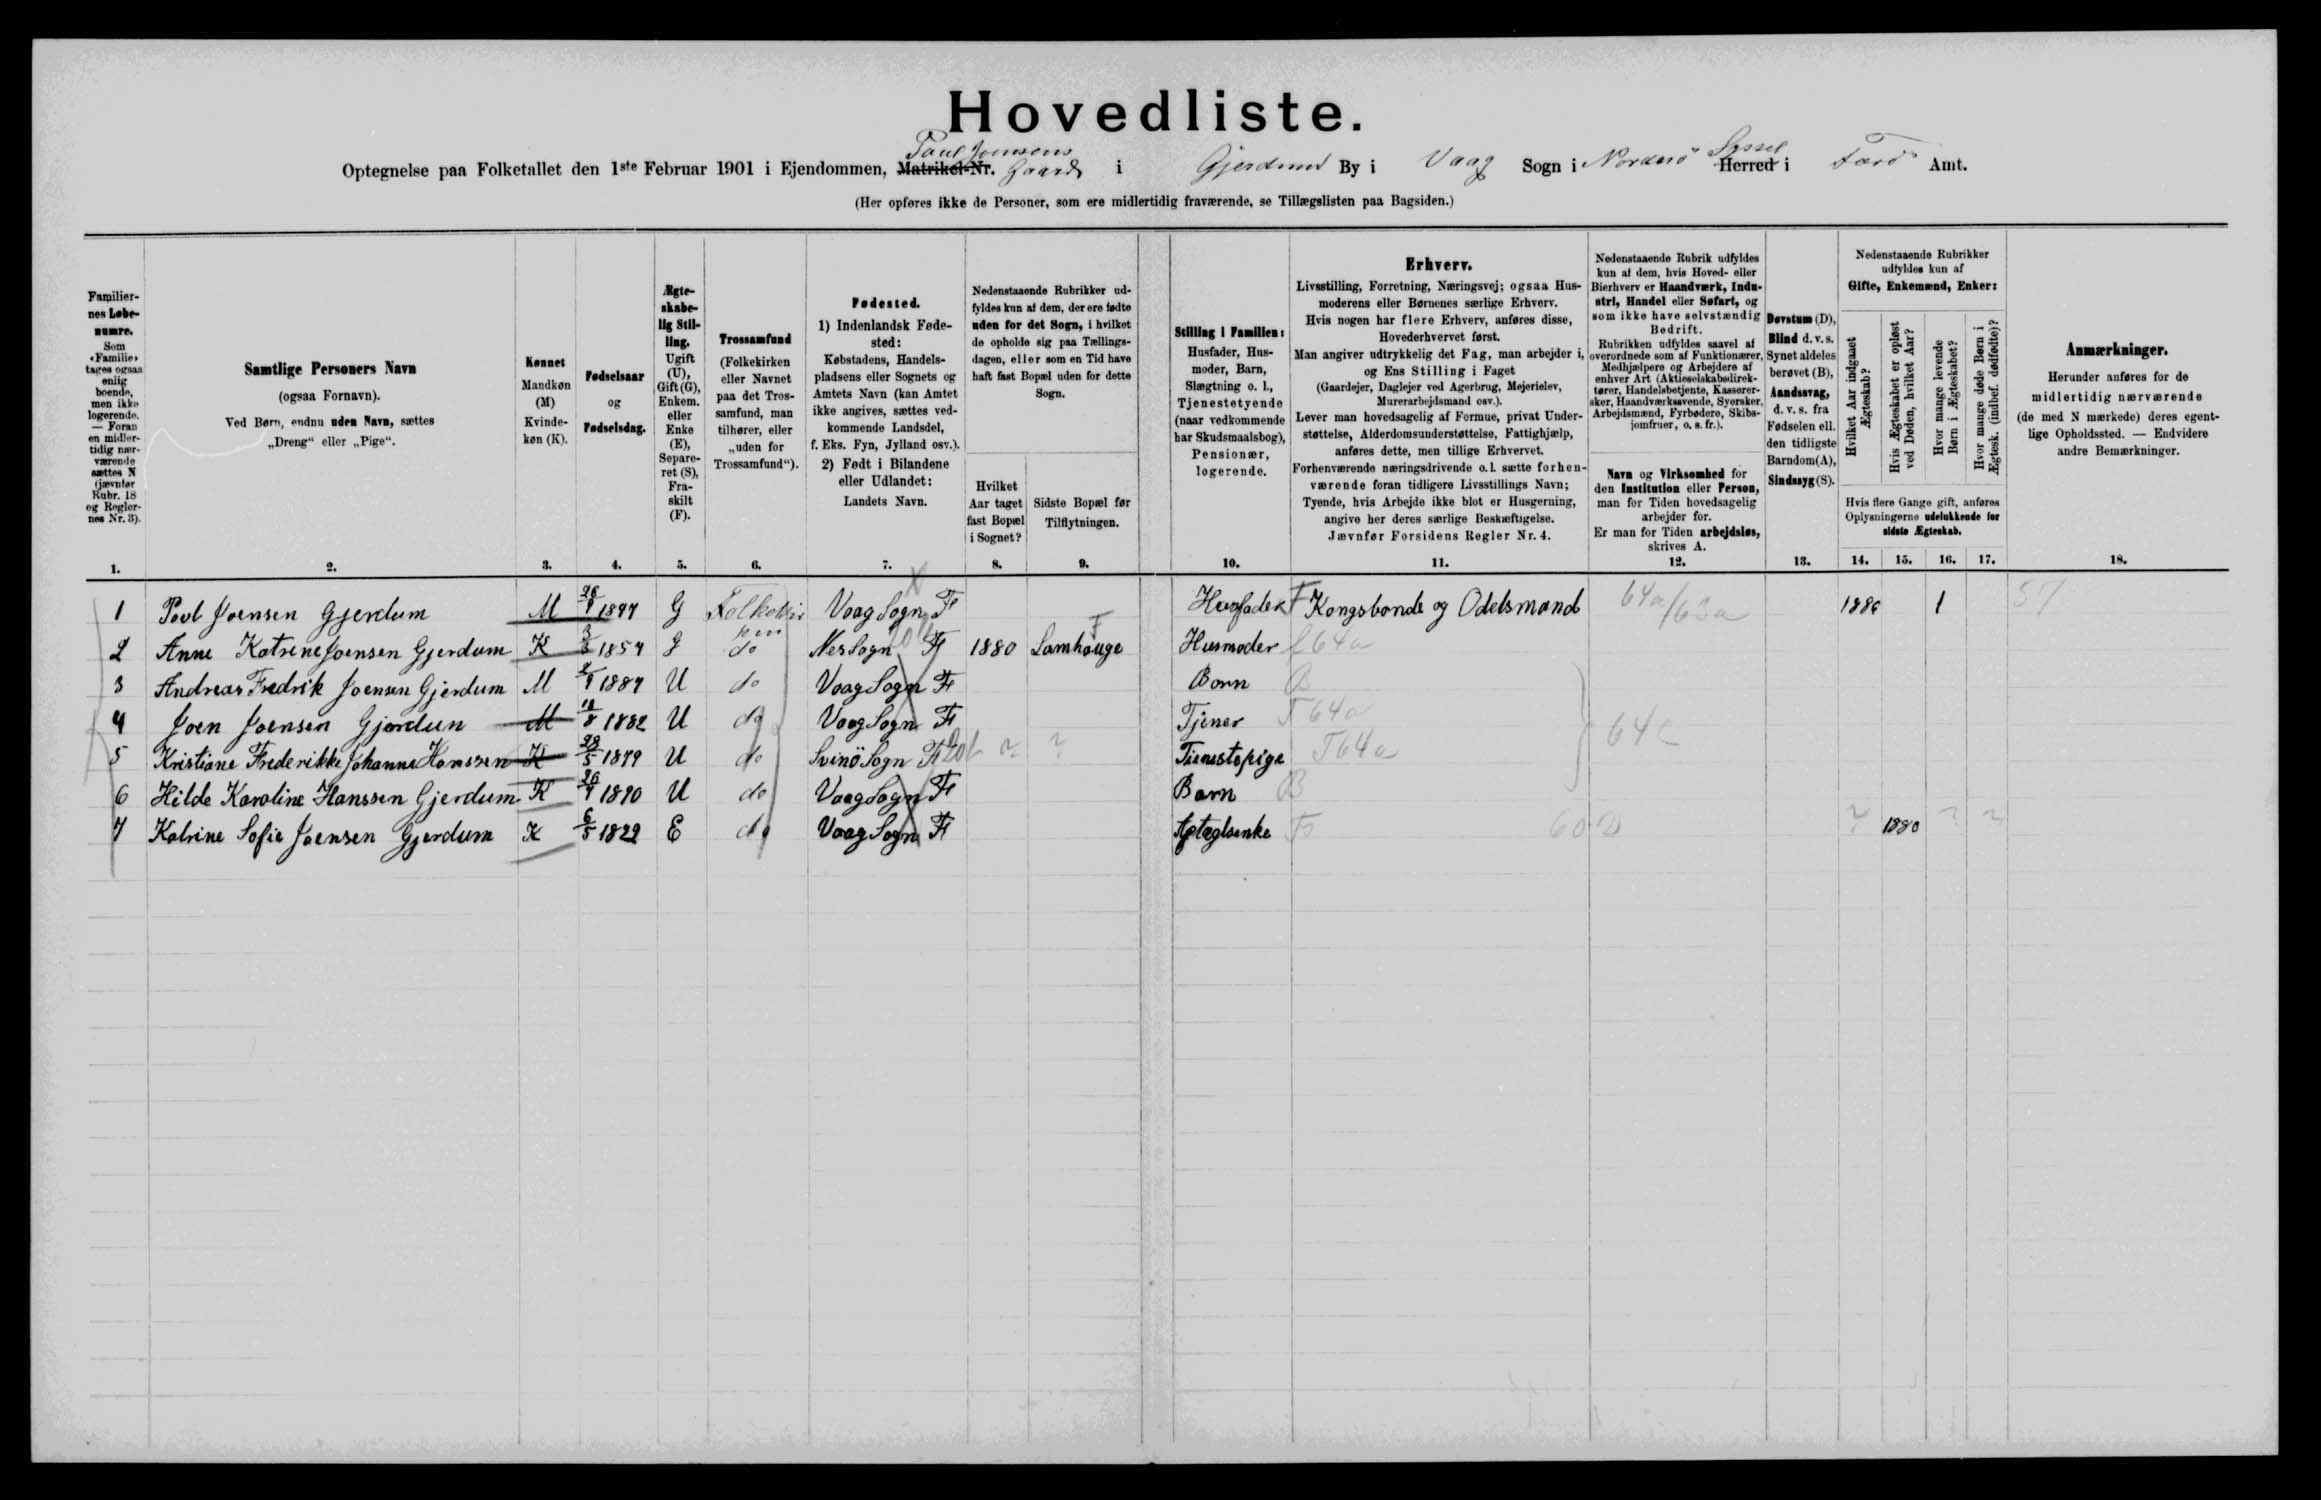 Hovedliste.
Paul Joensens Syssel
Optegnelse paa Folketallet den 1ste Februar 1901 i Ejendommen, Matrikel-Nr. Gaard i Gjerdum By i Vaag Sogn i Norderø Herred i Færø Amt.
(Her opføres ikke de Personer, som ere midlertidig fraværende, se Tillægslisten paa Bagsiden.)
Familier-
nes Løbe-
numre.
Som
«Familie»
tages ogsaa
enlig
boende,
men ikke
logerende.
— Foran
en midler-
tidig nær-
værende
sættes N
(jævnfør
Rubr. 18
og Regler-
nes Nr. 3).
1.
Samtlige Personers Navn
(ogsaa Fornavn).
Ved Børn, endnu uden Navn, sættes
„Dreng“ eller „Pige“.
2.
Kønnet
Mandkøn
(M)
Kvinde-
køn (K).
3.
Fødselsaar
og
Fødselsdag.
4.
Ægte-
skabe-
lig Stil-
ling.
Ugift
(U),
Gift (G),
Enkem.
eller
Enke
(E),
Separe-
ret (S),
Fra-
skilt
(F).
5.
Trossamfund
(Folkekirken
eller Navnet
paa det Tros-
samfund, man
tilhører, eller
„uden for
Trossamfund“).
6.
Fødested.
1) Indenlandsk Føde-
sted:
Købstadens, Handels-
pladsens eller Sognets og
Amtets Navn (kan Amtet
ikke angives, sættes ved-
kommende Landsdel,
f. Eks. Fyn, Jylland osv.).
2) Født i Bilandene
eller Udlandet:
Landets Navn.
7.
Nedenstaaende Rubrikker ud-
fyldes kun af dem, der ere fødte
uden for det Sogn, i hvilket
de opholde sig paa Tællings-
dagen, eller som en Tid have
haft fast Bopæl uden for dette
Sogn.
Hvilket
Aar taget
fast Bopæl
i Sognet?
8.
Sidste Bopæl før
Tilflytningen.
9.
Stilling i Familien:
Husfader, Hus-
moder, Barn,
Slægtning o. l.,
Tjenestetyende
(naar vedkommende
har Skudsmaalsbog),
Pensionær,
logerende.
10.
Erhverv.
Livsstilling, Forretning, Næringsvej; ogsaa Hus-
moderens eller Børnenes særlige Erhverv.
Hvis nogen har flere Erhverv, anføres disse,
Hovederhvervet først.
Man angiver udtrykkelig det Fag, man arbejder i,
og Ens Stilling i Faget
(Gaardejer, Daglejer ved Agerbrug, Mejerielev,
Murerarbejdsmand osv.).
Lever man hovedsagelig af Formue, privat Under-
støttelse, Alderdomsunderstøttelse, Fattighjælp,
anføres dette, men tillige Erhvervet.
Forhenværende næringsdrivende o. l. sætte forhen-
værende foran tidligere Livsstillings Navn;
Tyende, hvis Arbejde ikke blot er Husgerning,
angive her deres særlige Beskæftigelse.
Jævnfør Forsidens Regler Nr. 4.
11.
Nedenstaaende Rubrik udfyldes
kun af dem, hvis Hoved- eller
Bierhverv er Haandværk, Indu-
stri, Handel eller Søfart, og
som ikke have selvstændig
Bedrift.
Rubrikken udfyldes saavel af
overordnede som af Funktionærer,
Medhjælpere og Arbejdere af
enhver Art (Aktieselskabsdirek-
tører, Handelsbetjente, Kasserer-
sker, Haandværkssvende, Syersker,
Arbejdsmænd, Fyrbødere, Skibs-
jomfruer, o. s. fr.).
Navn og Virksomhed for
den Institution eller Person,
man for Tiden hovedsagelig
arbejder for.
Er man for Tiden arbejdsløs,
skrives A.
12.
Døvstum (D),
Blind d. v. s.
Synet aldeles
berøvet (B),
Aandssvag,
d. v. s. fra
Fødselen ell.
den tidligste
Barndom (A),
Sindssyg (S).
13.
Nedenstaaende Rubrikker
udfyldes kun af
Gifte, Enkemænd, Enker:
Hvilket Aar indgaaet
Ægteskab?
Hvis Ægteskabet er opløst
ved Døden, hvilket Aar?
Hvor mange levende
Børn i Ægteskabet?
Hvor mange døde Børn i
Ægtesk. (indbef. dødfødte)?
Hvis flere Gange gift, anføres
Oplysningerne udelukkende for
sidste Ægteskab.
14. 15. 16. 17.
Anmærkninger.
Herunder anføres for de
midlertidig nærværende
(de med N mærkede) deres egent-
lige Opholdssted. — Endvidere
andre Bemærkninger.
18.
1 Povl Joensen Gjerdum M 1847 G Folkekir Vaag Sogn Fr Husfader F Kongsbonde og Odelsmand 64a/63a 1886 1 57
ken
2 Anne Katrine Joensen Gjerdum K 1857 G do Nes Sogn Fr 1880 Lamhauge F Husmoder f 64a
3 Andreas Fredrik Joensen Gjerdum M 1887 U do Vaag Sogn Fr Barn B
4 Joen Joensen Gjerdum M 18/8 1882 U do Vaag Sogn Fr Tjener T 64a
5 Kristiane Frederikke Johanne Hanssen K 28/5 1879 U do Svinø Sogn Fr 20b ? ? Tjenestepige T64a 64c
6 Hilde Karoline Hanssen Gjerdum K 1890 U do Vaag Sogn Fr Barn B
7 Katrine Sofie Joensen Gjerdum K 6/5 1822 E do Vaag Sogn Fr Aftægtsenke Fs 60 D ? 1880 ? ?